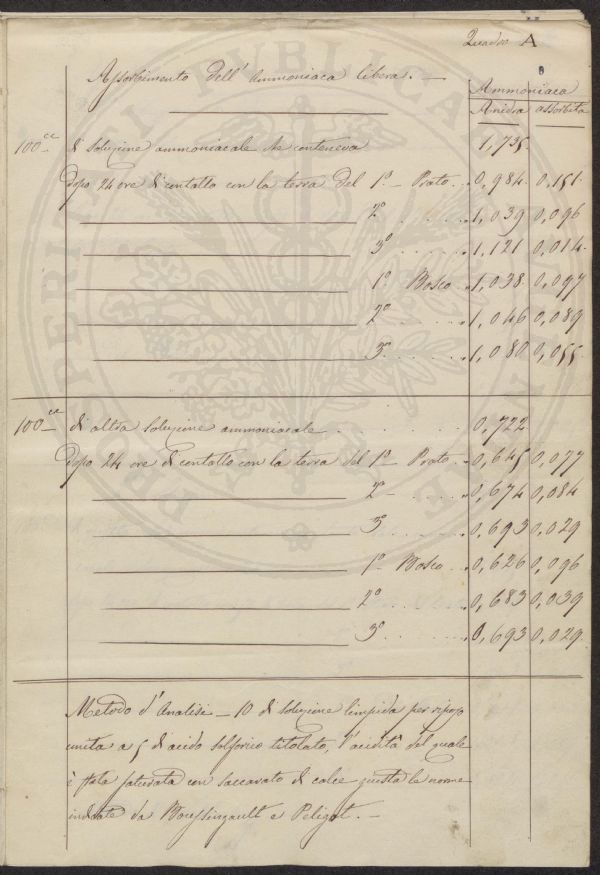 Quadro A
Assorbimento dell' Ammoniaca libera. —
Ammoniaca
Anidra assorbita
100 cc di soluzione ammoniacale che conteneva 1,735.
dopo 24 ore di contatto con la terra del 1º — Prato . . 0,984. 0,151.
2º . . . . . 1,039 0,096
3º . . . . . 1,121 0,014.
1º Bosco . . 1,038. 0,097
2º . . . . . 1,046 0,089
3º . . . . . 1,080 0,055.
100 cc di altra soluzione ammoniacale . . . . . 0,722
dopo 24 ore di contatto con la terra del 1º — Prato . . 0,645 0,077
2º — . . . . . 0,674 0,084
3º . . . . . 0,693 0,029
1º — Bosco . . 0,626 0,096
2º . . . . . 0,683 0,039
3º . . . . . 0,693 0,029
Metodo d'Analisi — 10 di soluzione limpida per riposo
unita a 5 di acido solforico titolato, l'acidità del quale
è stata saturata con saccarato di calce giusta le norme
indicate da Boussingault e Peligot. —